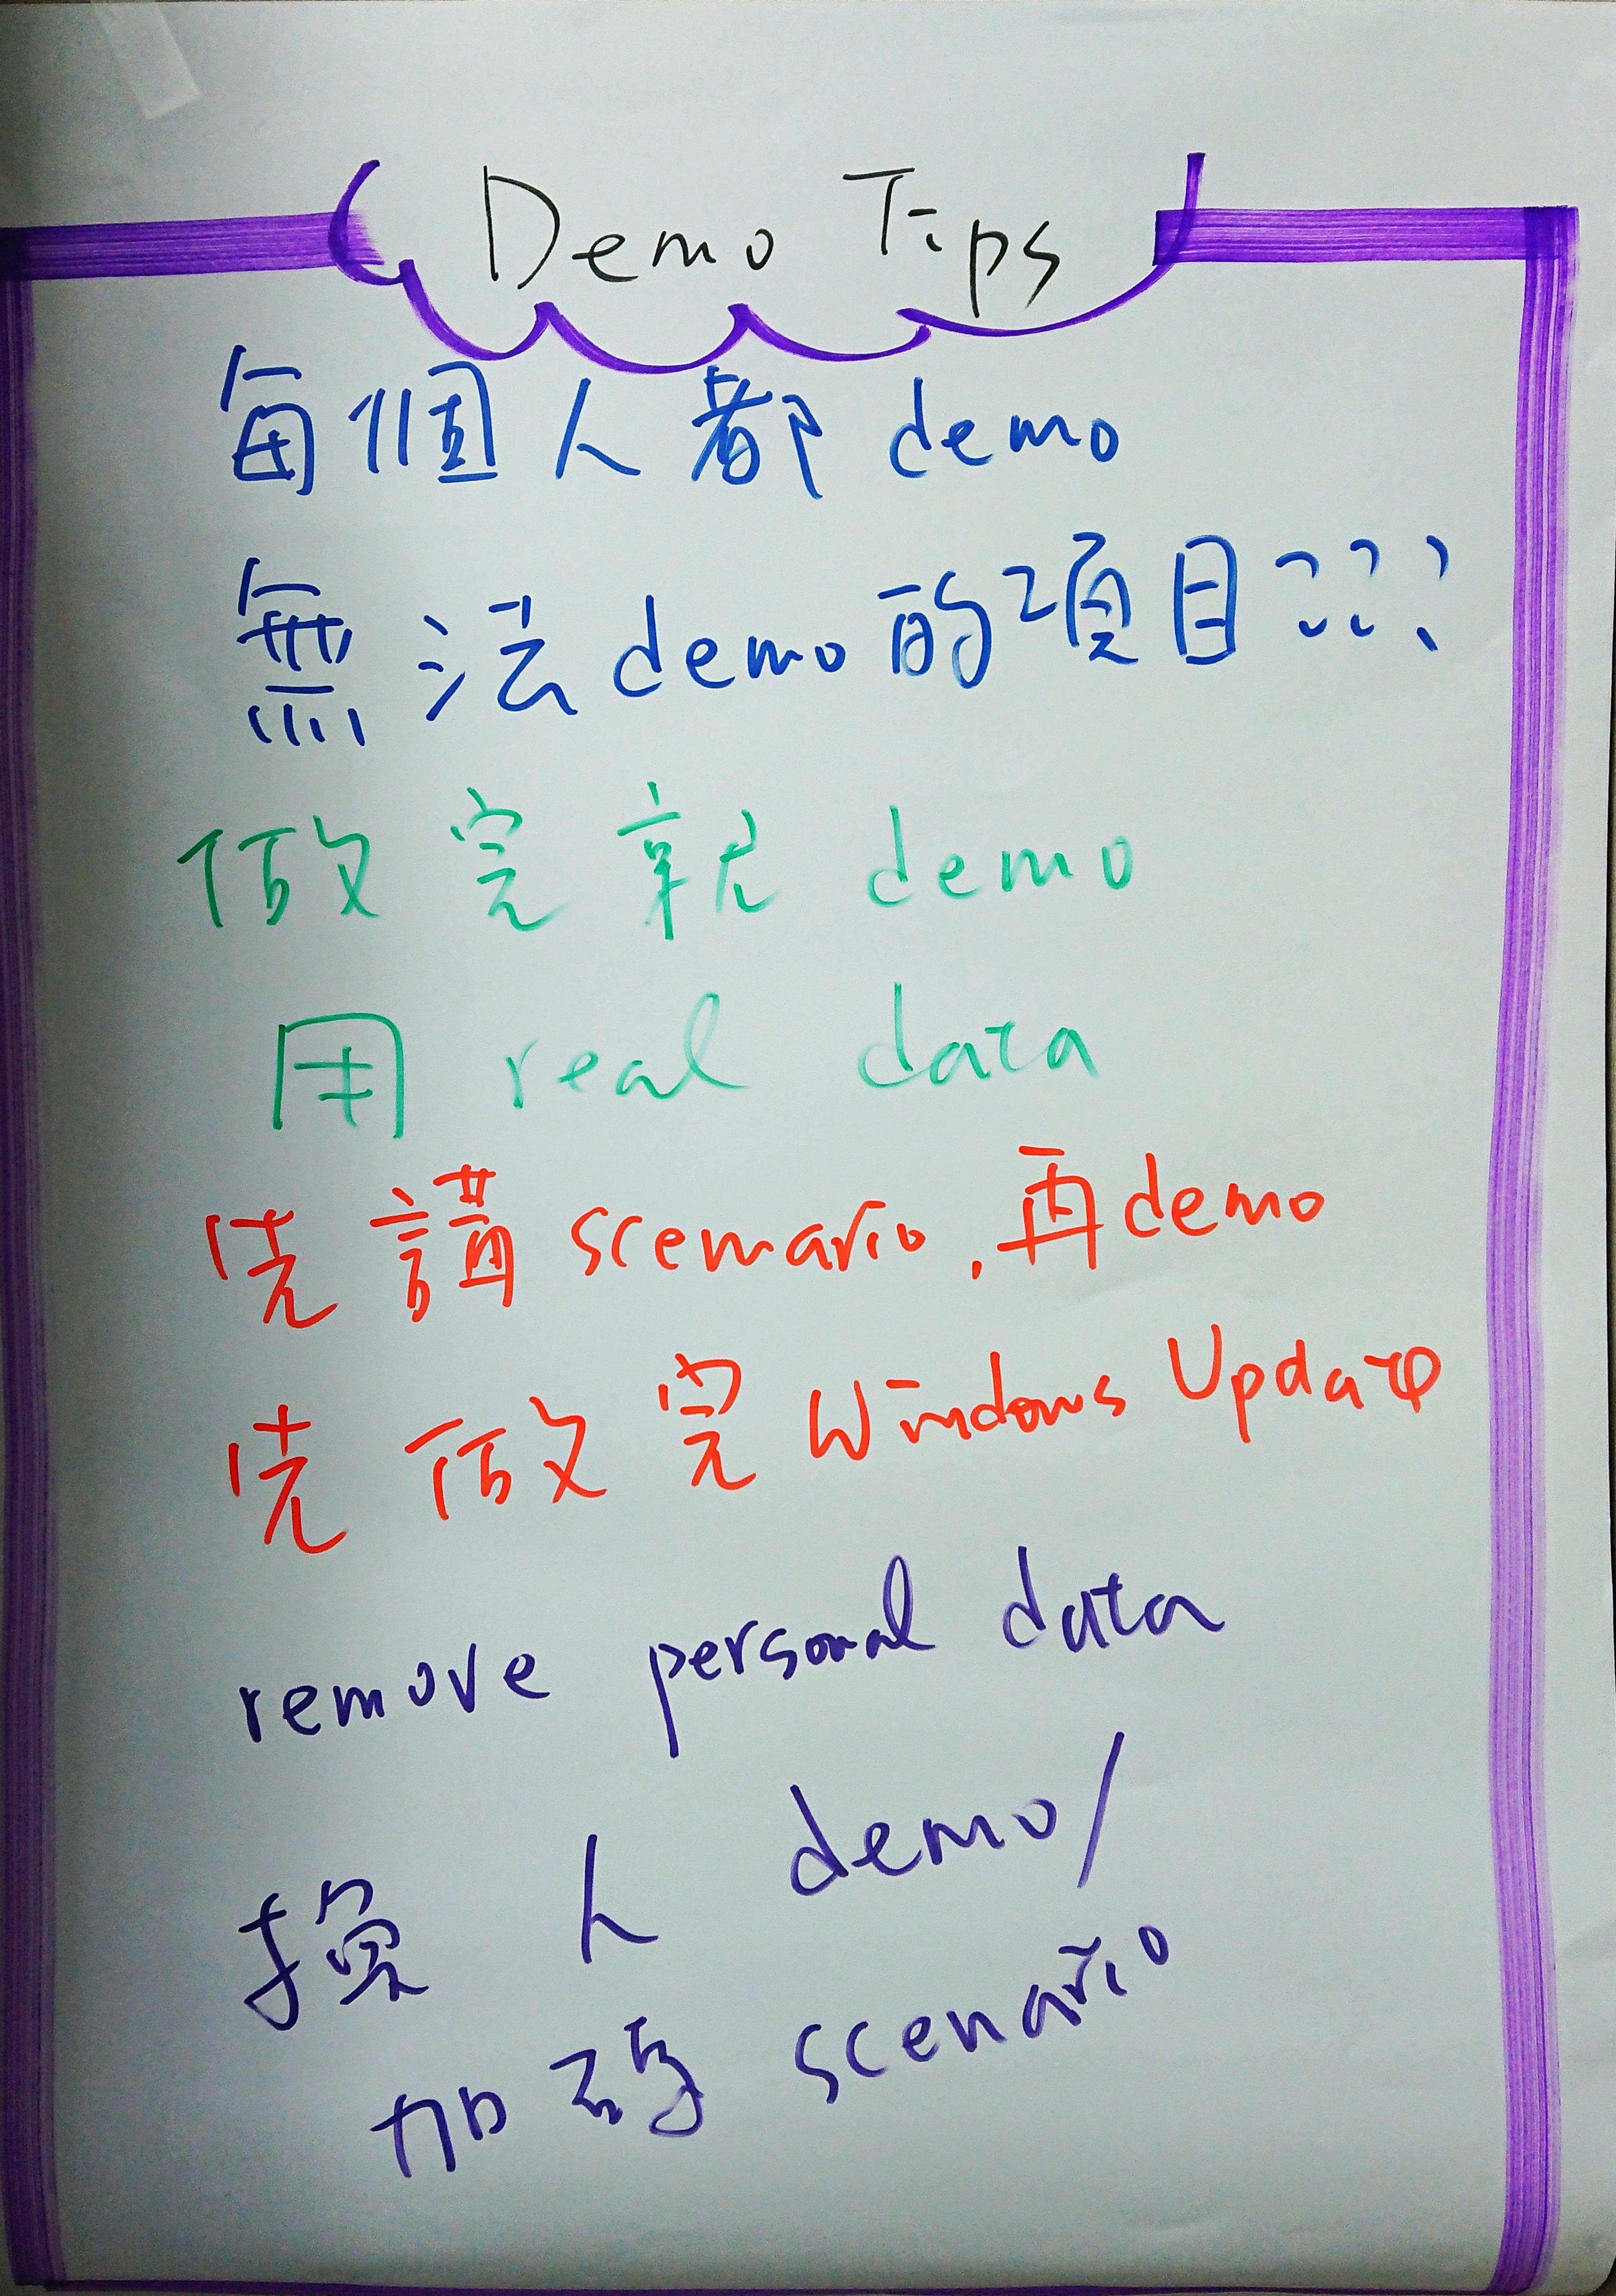 Demo Tips
每個人都 demo
無法 demo 的項目???
做完就 demo
用 real data
先講 scenario, 再 demo
先做完 Windows Update
remove personal data
換人 demo/
加碼 scenario